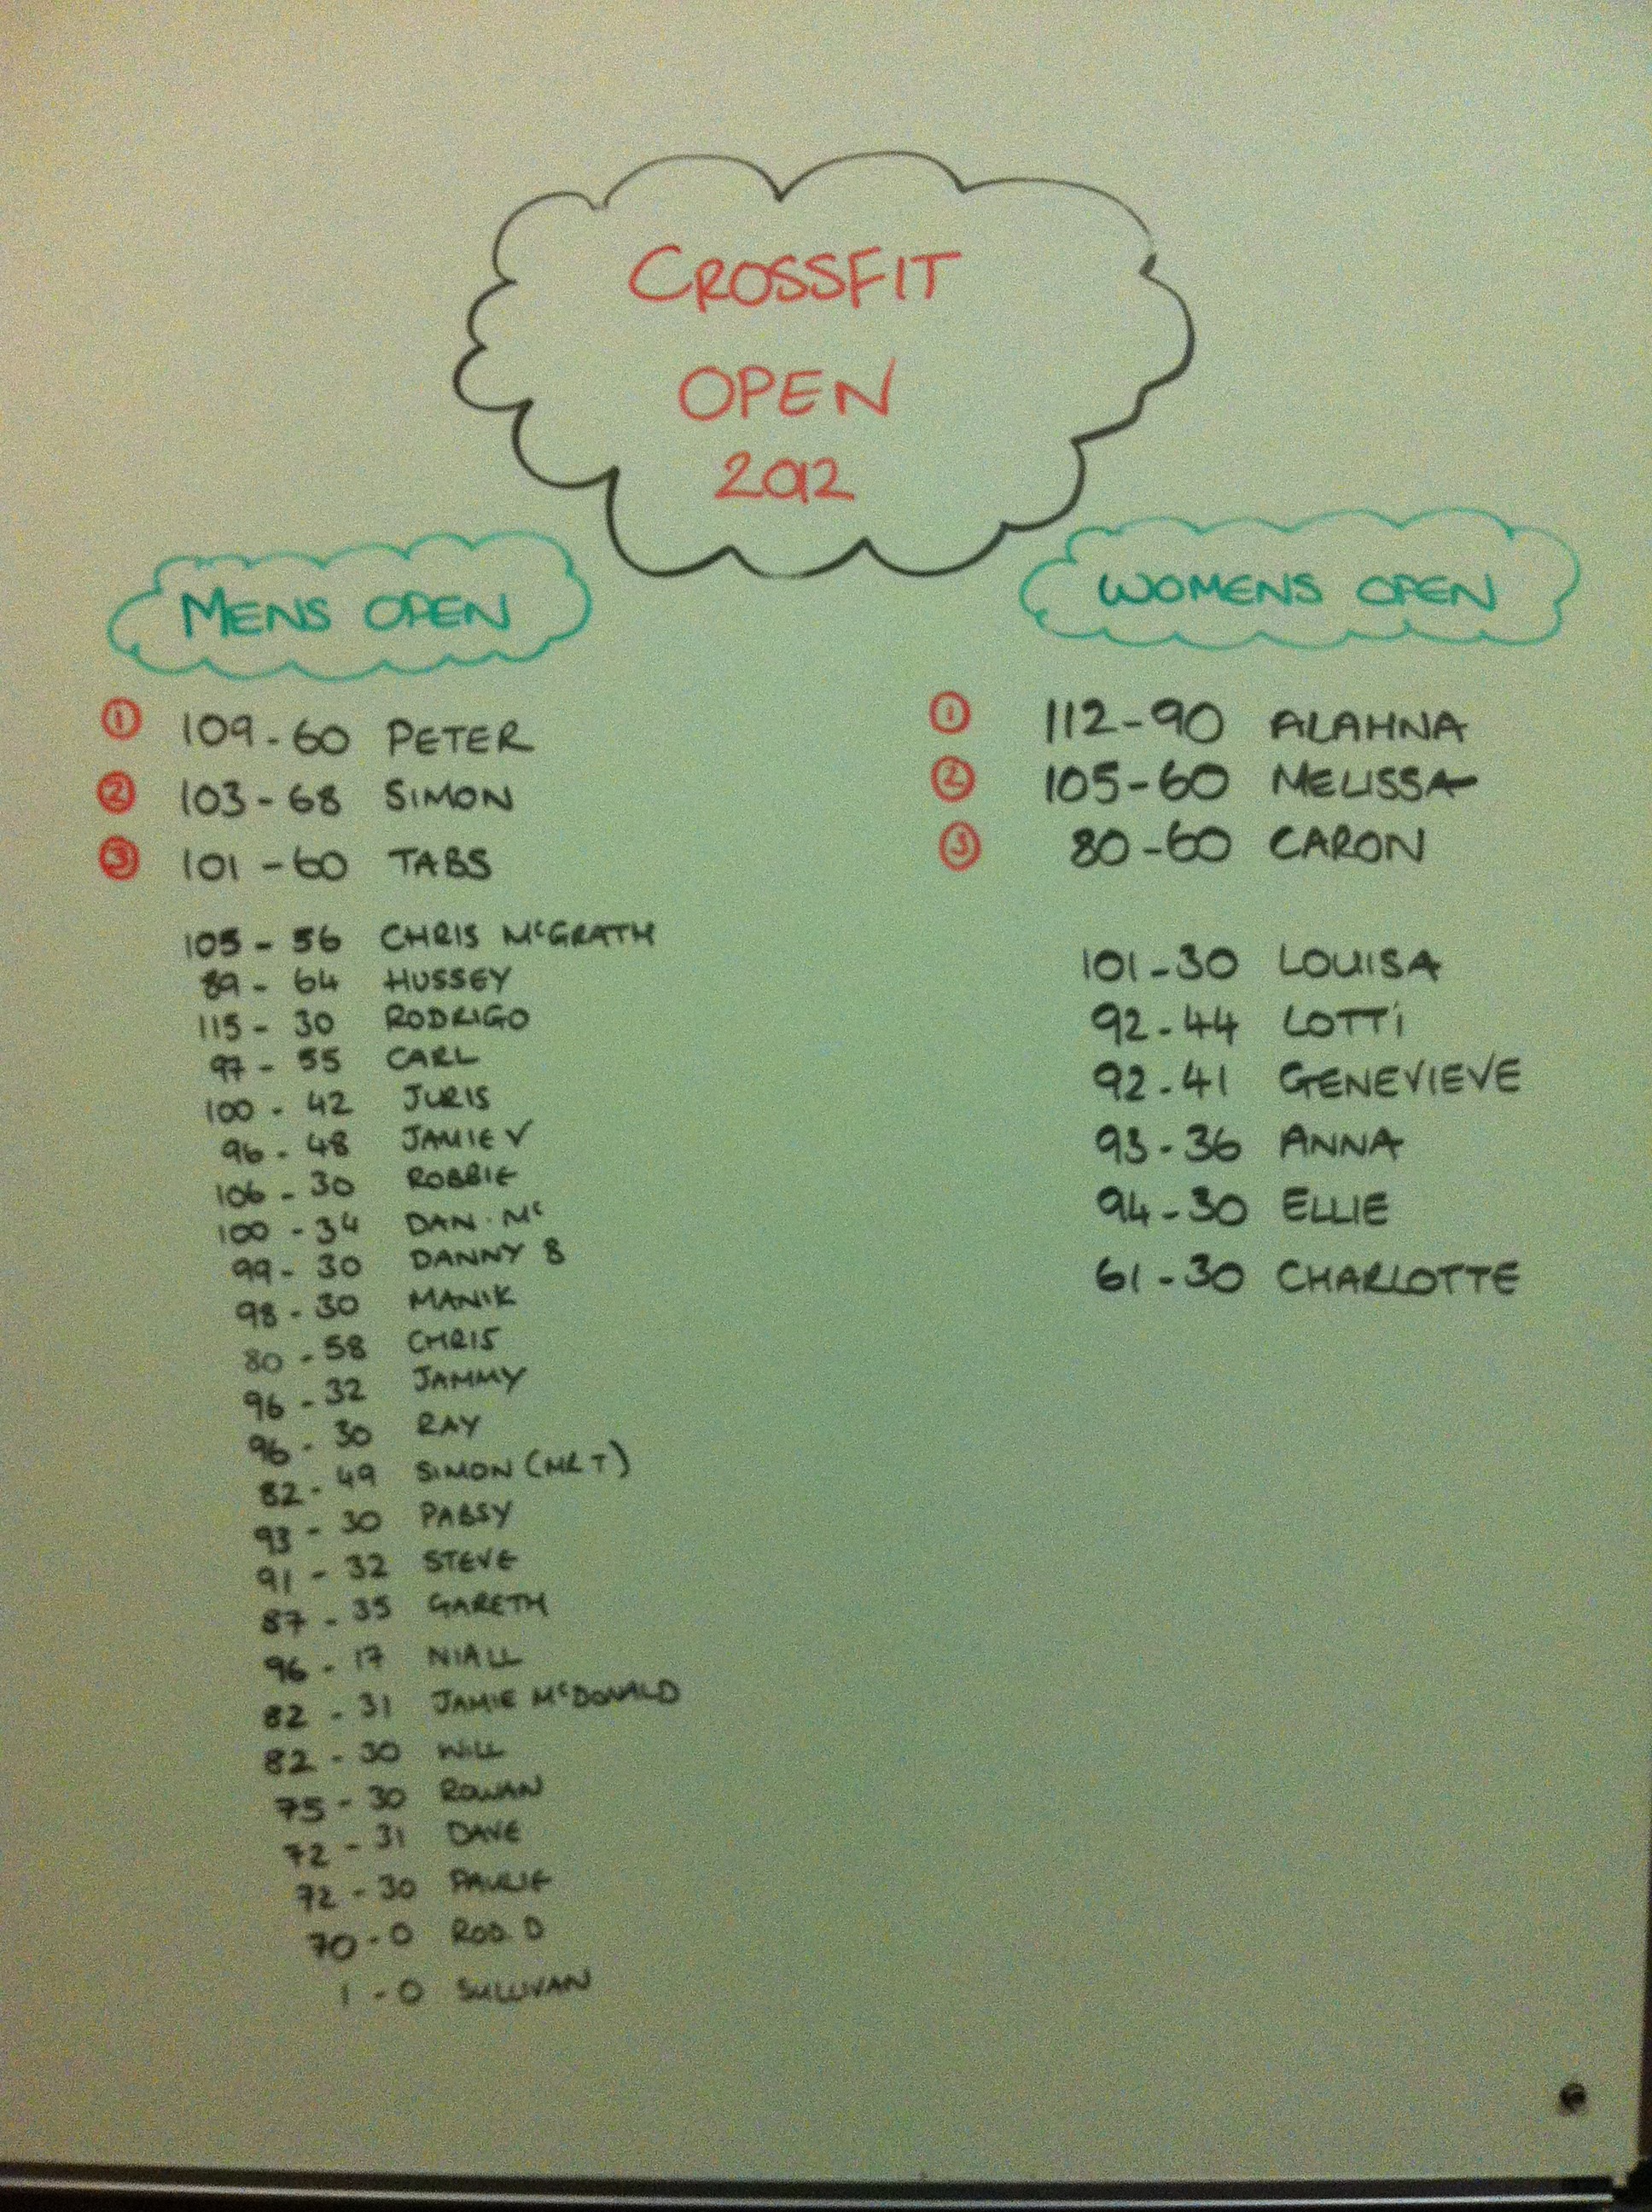 CROSSFIT
OPEN
2012
MENS OPEN
① 109-60 PETER
② 103-68 SIMON
③ 101-60 TABS
105-56 CHRIS McGRATH
89-64 HUSSEY
115-30 RODRIGO
97-55 CARL
100-42 JURIS
96-48 JAMIE V
106-30 ROBBIE
100-34 DAN. Mc
99-30 DANNY B
98-30 MANIK
80-58 CHRIS
96-32 JAMMY
96-30 RAY
82-49 SIMON (MR T)
93-30 PABSY
91-32 STEVE
87-35 GARETH
96-17 NIALL
82-31 JAMIE McDONALD
82-30 WILL
75-30 ROWAN
72-31 DAVE
72-30 PAULIE
70-0 ROD. D
1-0 SULLIVAN
WOMENS OPEN
① 112-90 ALAHNA
② 105-60 MELISSA
③ 80-60 CARON
101-30 LOUISA
92-44 LOTTi
92-41 GENEVIEVE
93-36 ANNA
94-30 ELLIE
61-30 CHARLOTTE